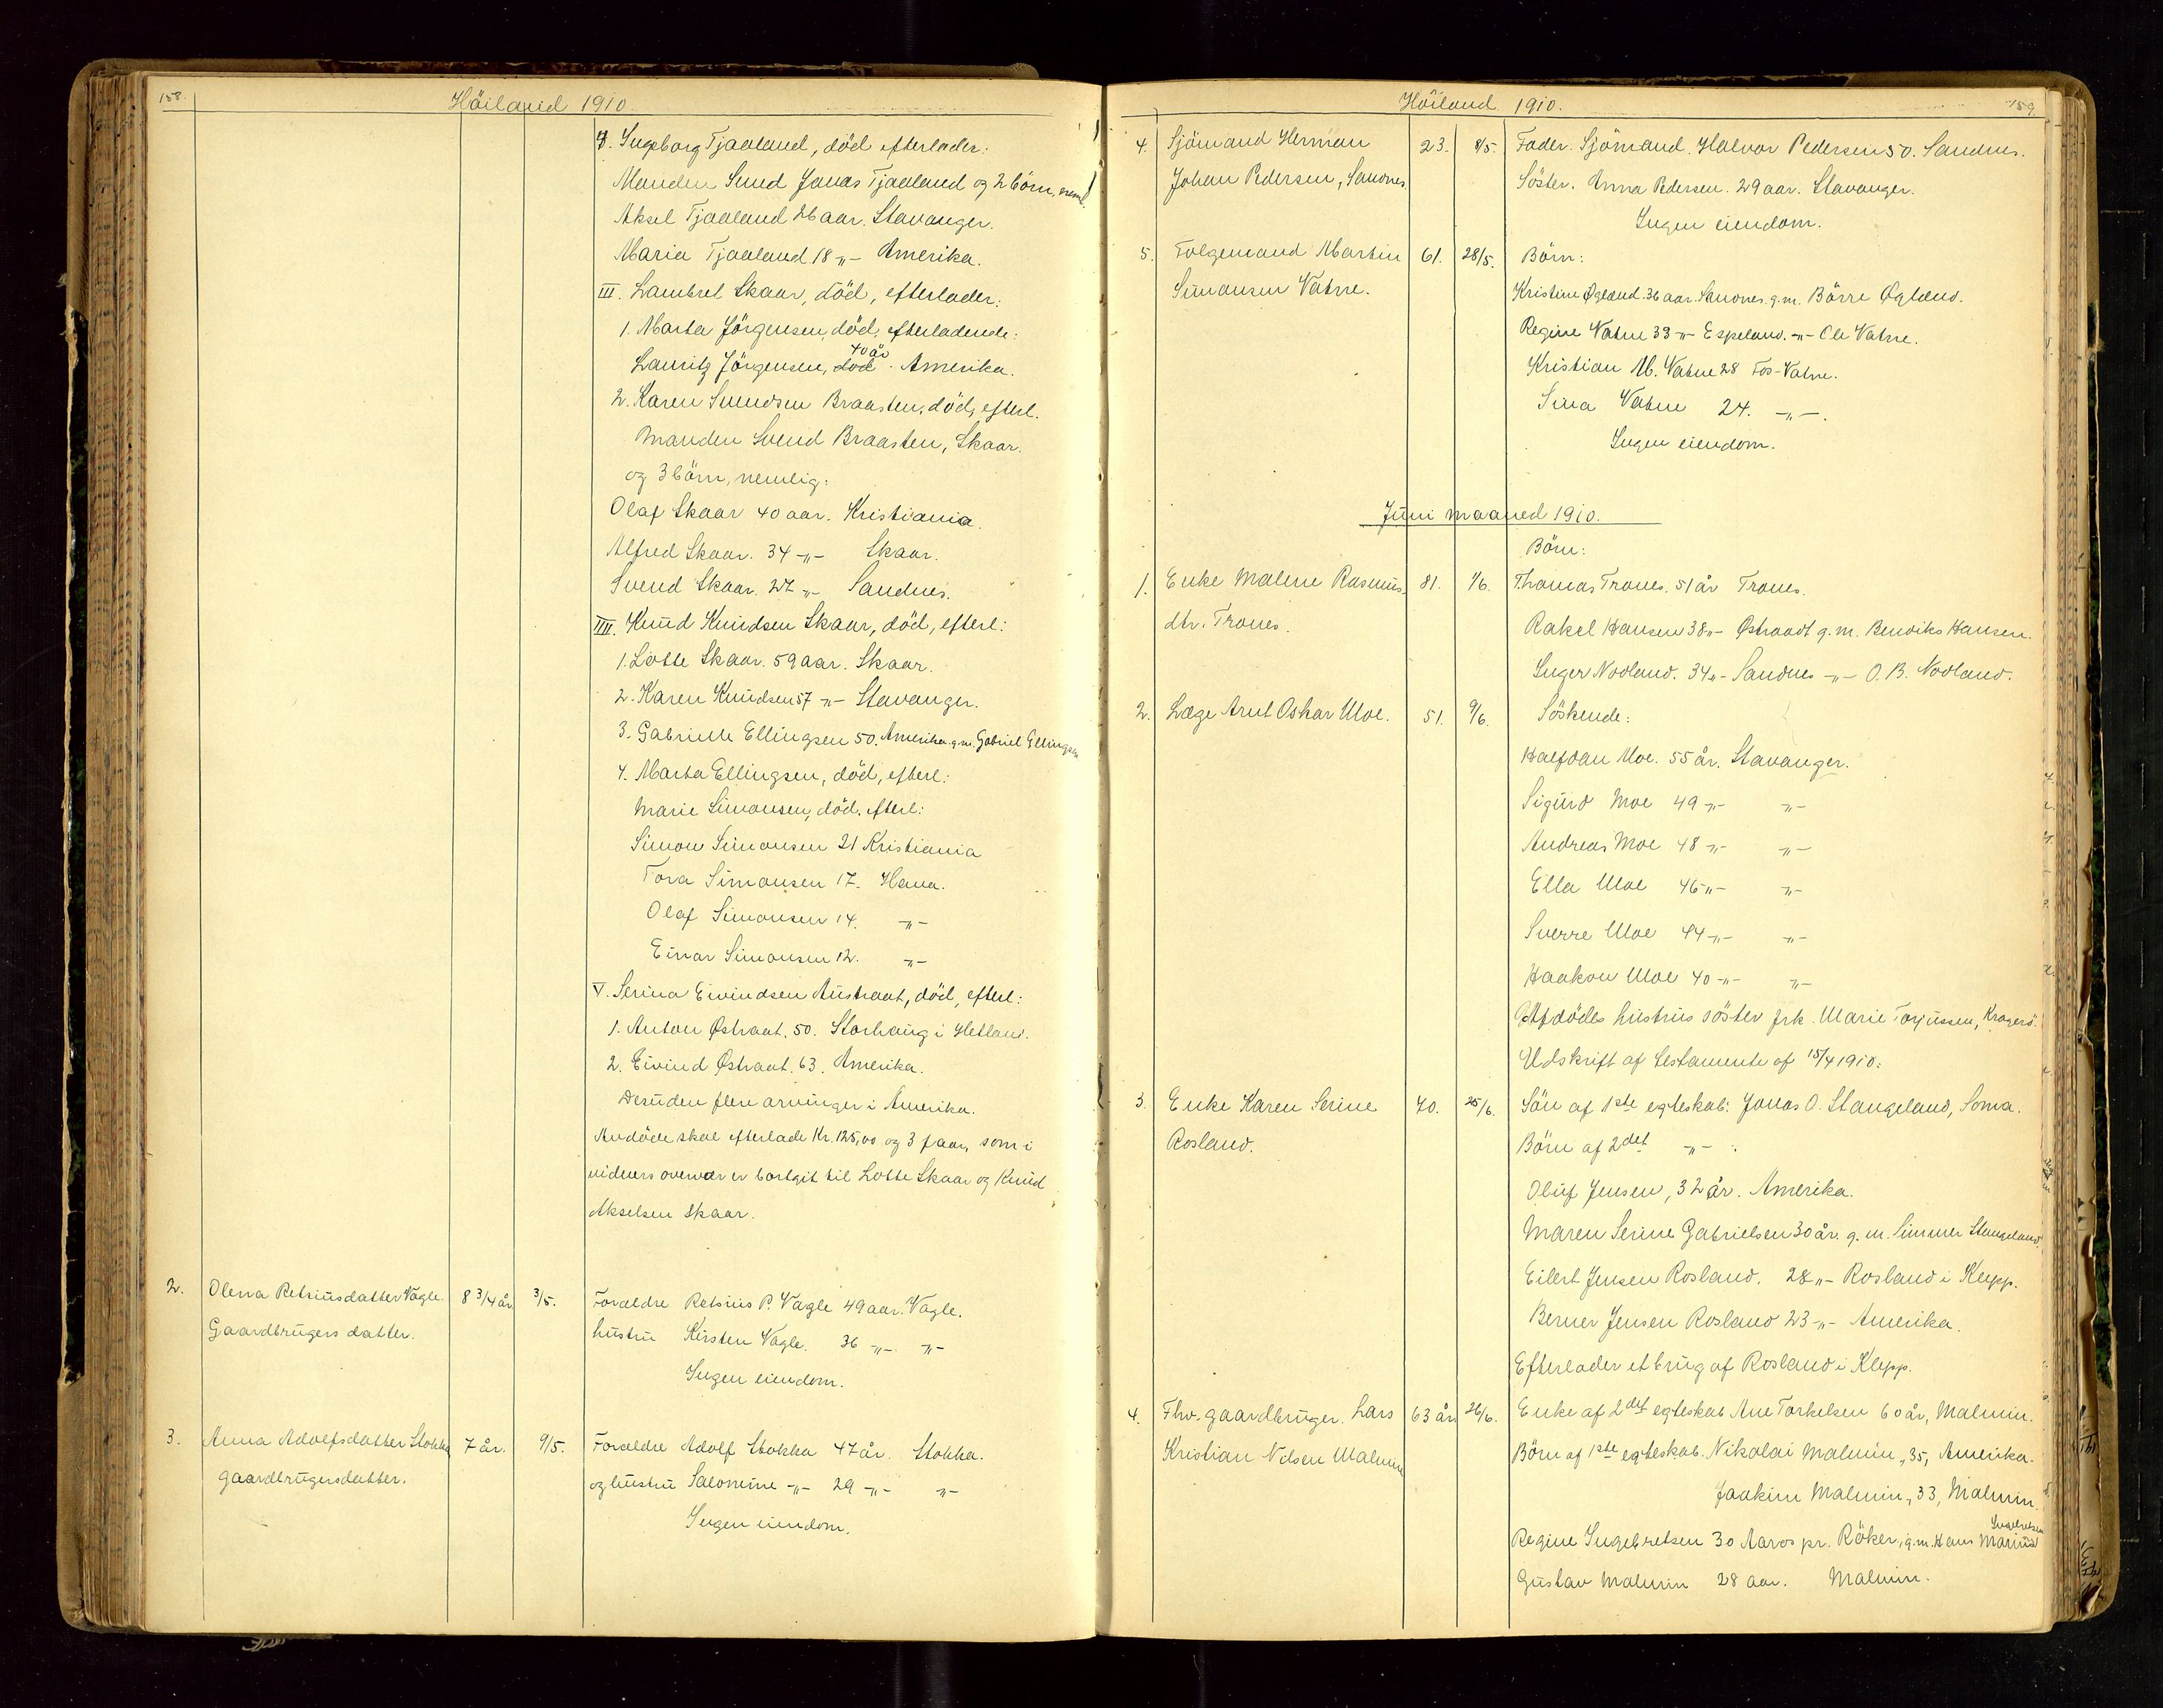 158.
Höiland 1910.
7. Ingeborg Tjaaland, död efterlader:
Manden Svend Jonas Tjaaland og 2 börn, neml.
Aksel Tjaaland 26 aar. Stavanger.
Maria Tjaaland 18 -"- Amerika.
III. Lambret Skaar, död, efterlader:
1. Marta Jörgensen, död, efterladende:
40 år
Lauritz Jörgensen, död. Amerika.
2. Karen Svendsen Braasten, död, efterl.
Manden Svend Braasten, Skaar.
og 3 börn, nemlig:
Olaf Skaar 40 aar. Kristiania.
Alfred Skaar. 34 -"- Skaar.
Svend Skaar. 27 -"- Sandnes.
IIII. Knud Knudsen Skaar, död, efterl:
1. Lotte Skaar. 59 aar. Skaar.
2. Karen Knudsen 57 -"- Stavanger.
3. Gabrielle Ellingsen 50. Amerika g.m. Gabriel Ellingsen
4. Marta Ellingsen, död, efterl:
Marie Simonsen, död, efterl:
Simon Simonsen 21 Kristiania
Tora Simonsen 17. Hana.
Olaf Simonsen 14. -"-
Einar Simonsen 12. -"-
V. Serina Eivindsen Austraat, död, efterl:
1. Anton Østraat. 50. Storhaug i Hetland.
2. Eivind Østraat. 63. Amerika.
Desuden flere arvinger i Amerika.
Avdöde skal efterlade Kr. 125,00 og 3 faar, som i
vidners overvær er bortgit til Lotte Skaar og Knud
Akselsen Skaar.
2. Olena Retsiusdatter Vagle. 8 3/4 år 3/5. Forældre Retsius P. Vagle 49 aar. Vagle.
Gaardbrugers datter. hustru Kirsten Vagle. 36 -"- -"-
Ingen eiendom.
3. Anna Adolfsdatter Stokka 7 år. 9/5. Forældre Adolf Stokka 47 år. Stokka.
gaardbrugersdatter. og hustru Salomine -"- 29 -"- -"-
Ingen eiendom.
Höiland 1910.
159.
4. Sjömand Herman 23. 8/5. Fader. Sjömand. Halvor Pedersen 50. Sandnes.
Johan Pedersen, Sandnes. Söster. Anna Pedersen. 29 aar. Stavanger.
Ingen eiendom.
5. Folgemand Martin 61. 28/5. Börn:
Simonsen Vatne. Kristine Øgland. 36 aar. Sandnes. g.m. Börre Øgland.
Regine Vatne 33 -"- Espeland. -"- Ole Vatne.
Kristian M. Vatne 28 Fos-Vatne.
Sina Vatne 24. -"-.
Ingen eiendom.
Juni maaned 1910.
Börn:
1. Enke Malene Rasmus- 81. 1/6. Thomas Trones. 51 år Trones.
dtr. Trones. Rakel Hansen 38 -"- Østraadt g.m. Bendiks Hansen.
Inger Nodland. 34 -"- Sandnes -"- O. B. Nodland.
2. Læge Arnt Oskar Moe. 51. 9/6. Söskende:
Halfdan Moe. 55 år. Stavanger.
Sigurd Moe 49 -"- -"-
Andreas Moe 48 -"- -"-
Ella Moe 46 -"- -"-
Sverre Moe 44 -"- -"-
Haakon Moe 40 -"- -"-
Afdödes hustrus söster frk. Marie Torjussen, Kragerö.
Udskrift af testamente af 15/4 1910:
3. Enke Karen Serine 70. 25/6. Sön af 1ste egteskab: Jonas O. Stangeland, Soma.
Rosland. Börn af 2det -"- :
Oluf Jensen, 32 år. Amerika.
Maren Serine Gabrielsen 30 år. g.m. Simmer Stangeland.
Eilert Jensen Rosland. 28 -"- Rosland i Klepp.
Berner Jensen Rosland 23 -"- Amerika.
Efterlader et brug af Rosland i Klepp.
4. Fhv. gaardbruger. Lars 63 år 26/6. Enke af 2det egteskab Ane Torkelsen 60 år, Malmin.
Kristian Nilsen Malmin Börn af 1ste egteskab. Nikolai Malmin, 35, Amerika.
Joakim Malmin, 33, Malmin.
Regine Ingebretsen 30 Aaros pr. Röken, g.m. Hans Marius
Gustav Malmin 28 aar. Malmin.